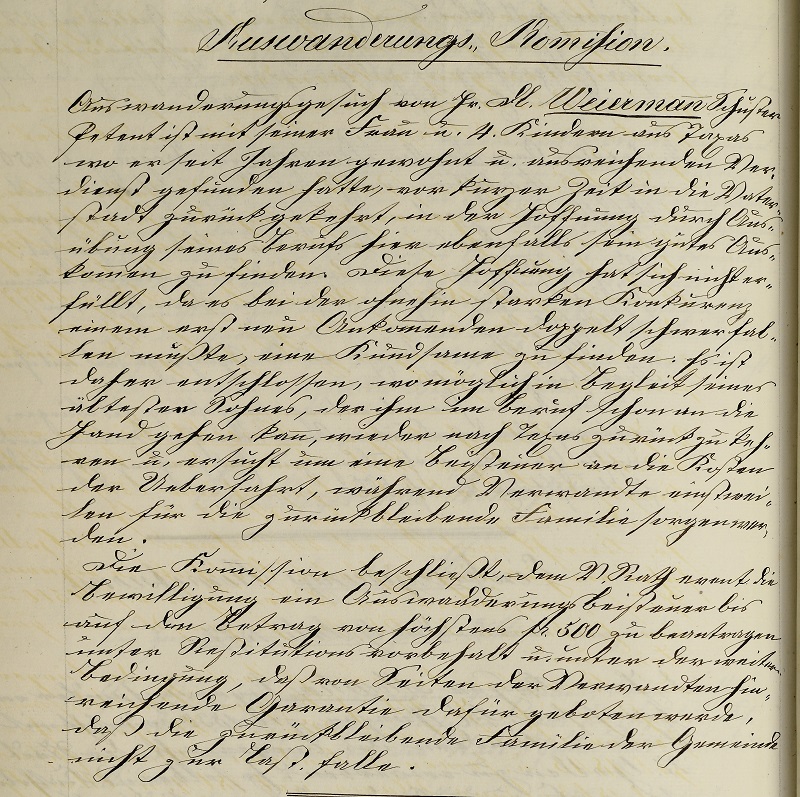 Auswanderungs-Komission.
Auswanderungsgesuch von Hr. M. Weiermann Schuster
Petent ist mit seiner Frau u. 4. Kindern aus Texas
wo er seit Jahren gewohnt u. ausreichenden Ver-
dienst gefunden hatte, vor kurzer Zeit in die Vater-
stadt zurückgekehrt, in der Hoffnung durch Aus-
übung seines Berufs hier ebenfalls sein gutes Aus-
komen zu finden. Diese Hoffnung hat sich nicht er-
füllt, da es bei der ohnehin starken Konkurenz
einem erst neu Ankommenden doppelt schwer fal-
len mußte, eine Kundsame zu finden. Er ist
daher entschlossen, womöglich in Begleit seines
ältesten Sohnes, der ihm im Beruf schon an die
Hand gehen kann, wieder nach Texas zurückzukeh-
ren u. ersucht um eine Beisteuer an die Kosten
der Ueberfahrt, während Verwandte einstwei-
len für die zurückbleibende Familie sorgen wer-
den.
Die Komission beschließt, dem V. Rath event die
Bewilligung ein Auswadderungsbeisteuer bis
auf den Betrag von höchstens fr. 500 zu beantragen
unter Restitutionsvorbehalt u. unter der weitern
Bedingung, daß von Seiten der Verwandten hin-
reichende Garantie dafür geboten werde,
daß die zurückbleibende Familie der Gemeinde
nicht zur Last falle.